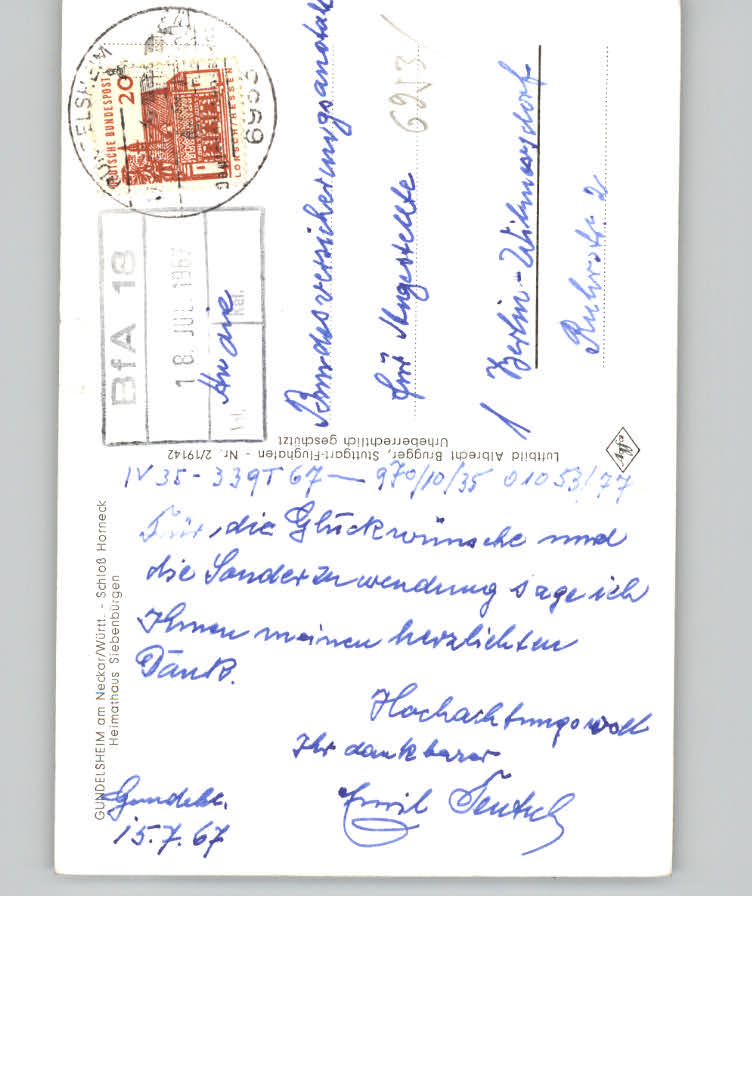 GUNDELSHEIM am Neckar/Württ. - Schloß Horneck
Heimathaus Siebenbürgen
IV 35 - 339T 67 — 970/10/35 01053/77
Für die Glückwünsche und
die Sonderzuwendung sage ich
Ihnen meinen herzlichten
Dank.
Hochachtungsvoll
Ihr dankbarer
Emil Teutsch
Gundelsh.
15.7.67
Luftbild Albrecht Brugger, Stuttgart-Flughafen - Nr. 2/19142
Urheberrechtlich geschützt
DEUTSCHE BUNDESPOST
20
LORSCH/HESSEN
6953
BfA 18
18. JUL 1967
An die
Bundesversicherungsanstalt
für Angestellte
6953
1 Berlin-Wilmersdorf
Ruhrstr. 2